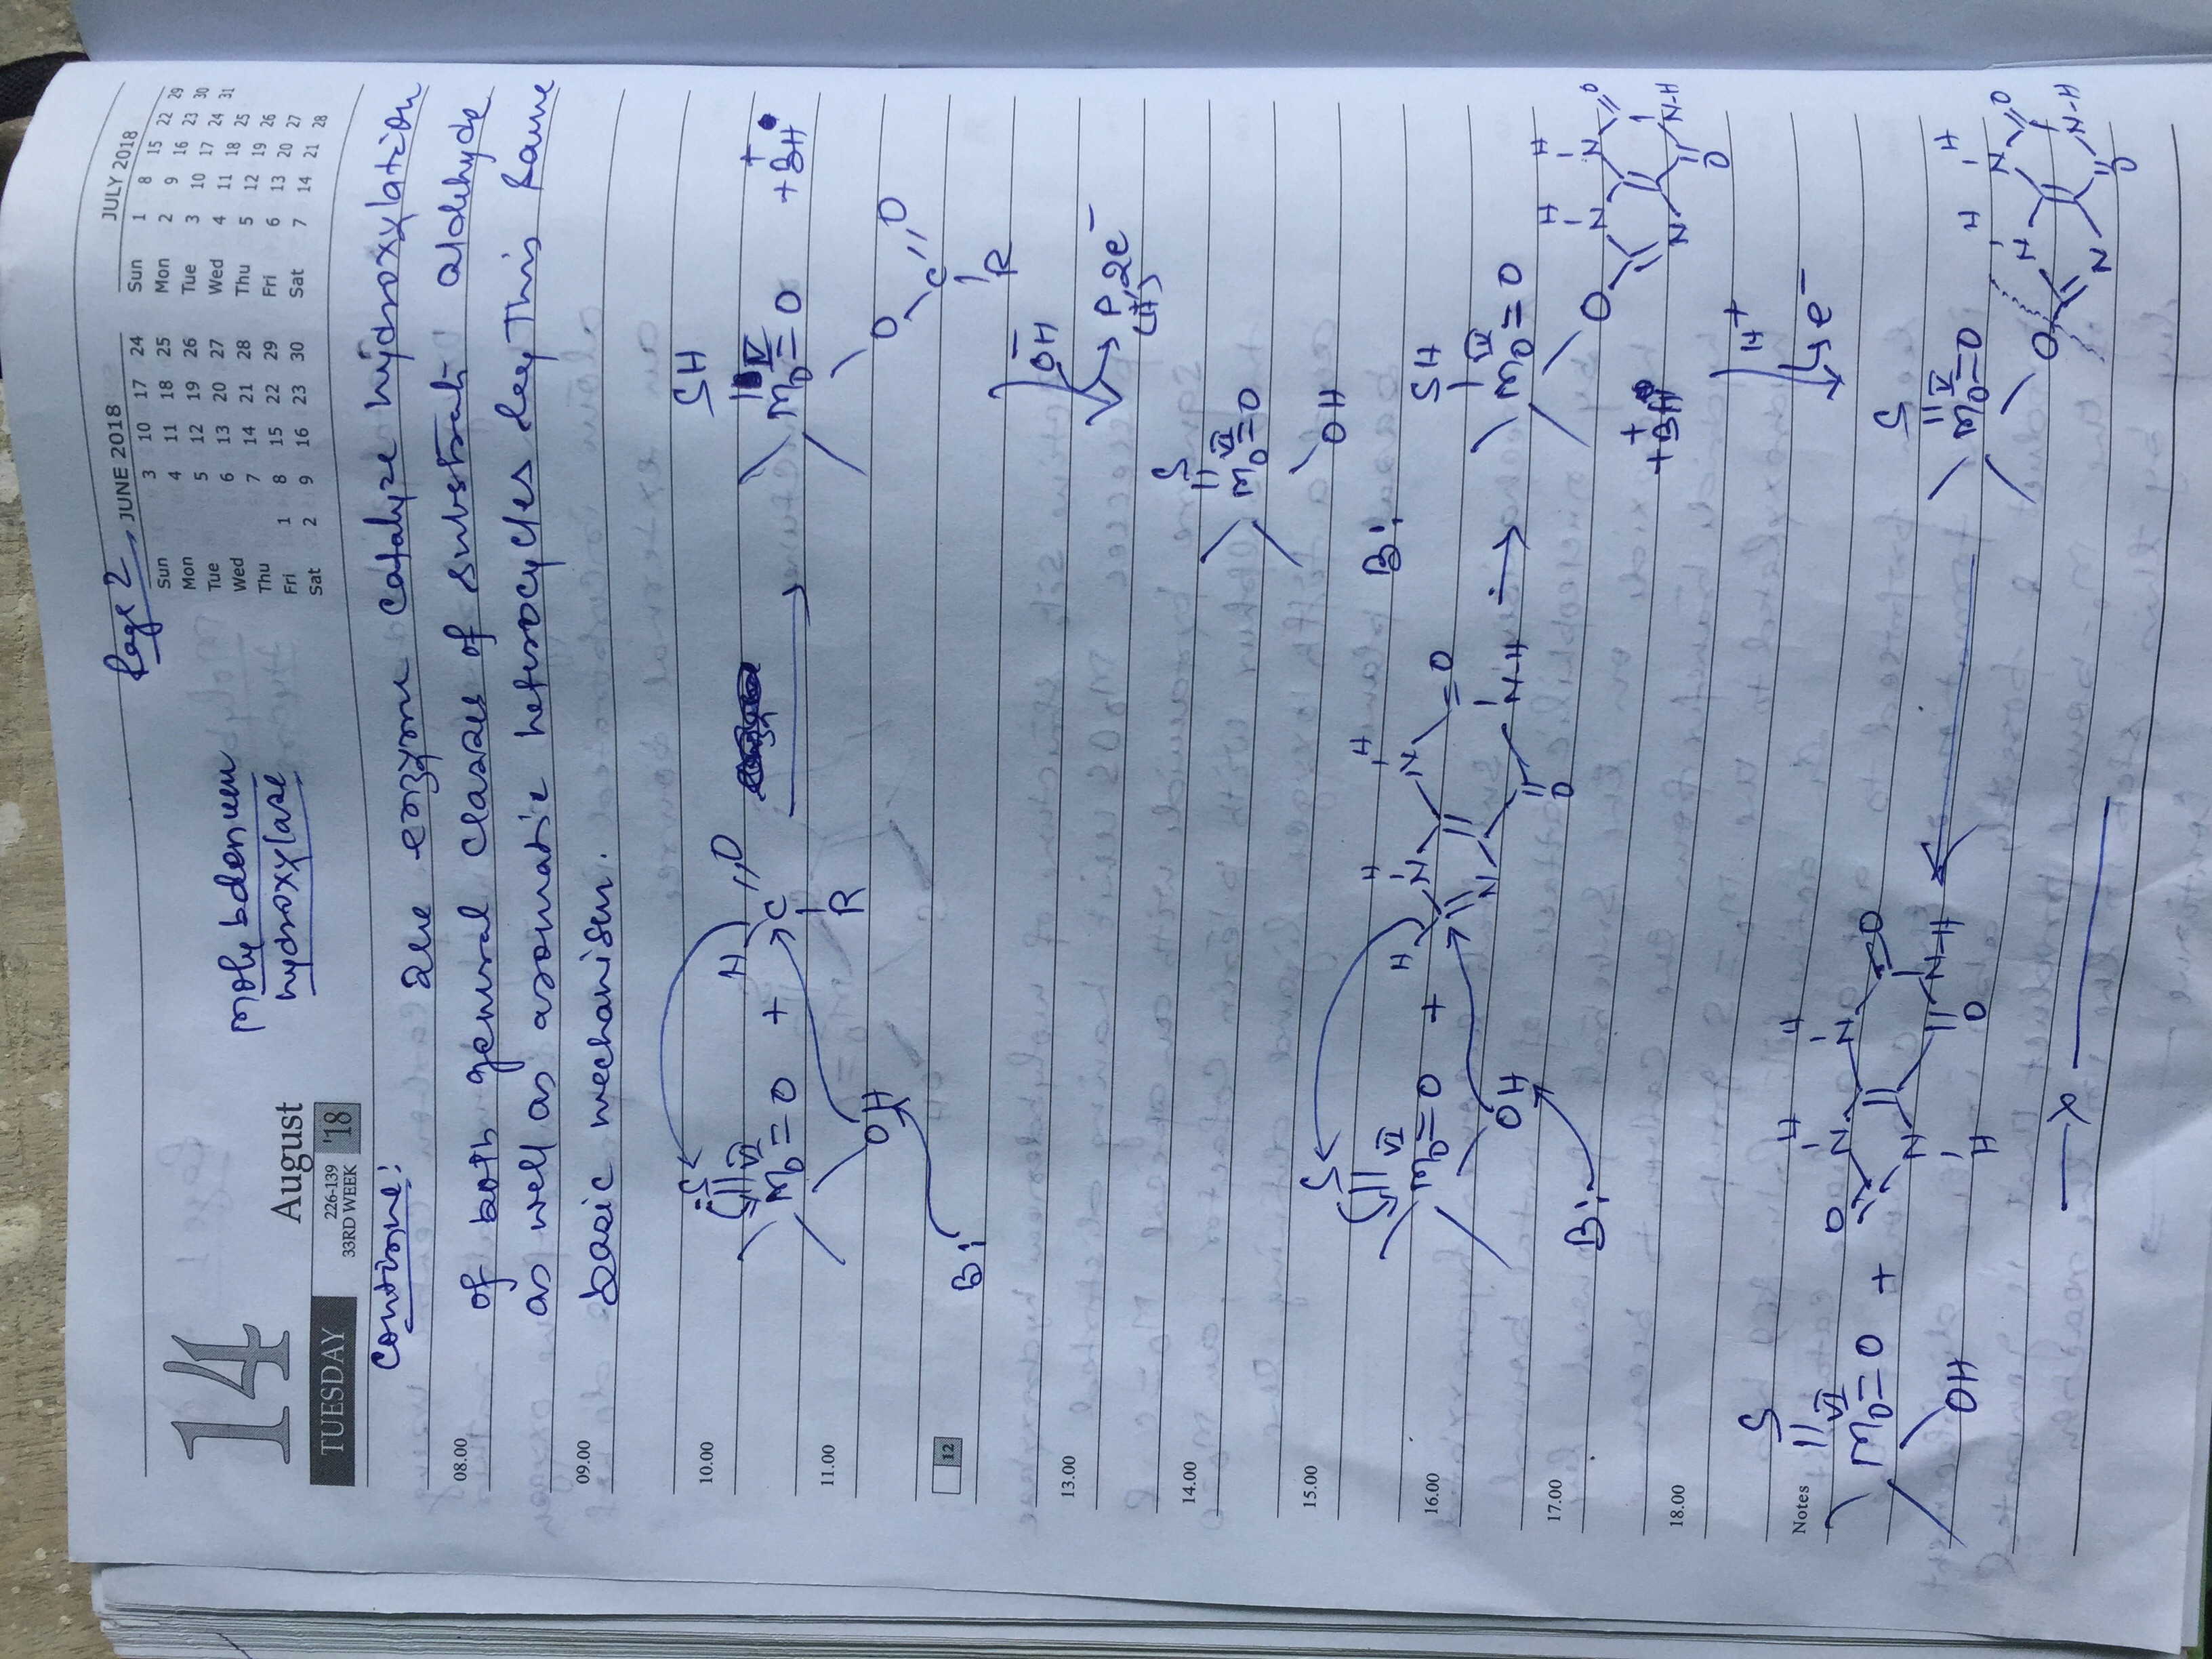 Page 2
14
TUESDAY
August
226-139
33RD WEEK
'18
Molybdenum
hydroxylase
JUNE 2018
Sun 3 10 17 24
Mon 4 11 18 25
Tue 5 12 19 26
Wed 6 13 20 27
Thu 7 14 21 28
Fri 1 8 15 22 29
Sat 2 9 16 23 30
JULY 2018
Sun 1 8 15 22 29
Mon 2 9 16 23 30
Tue 3 10 17 24 31
Wed 4 11 18 25
Thu 5 12 19 26
Fri 6 13 20 27
Sat 7 14 21 28
Continue:
are enzyme catalyze hydroxylation
08.00
of both general classes of substrate aldehyde
as well as aromatic heterocycles by this same
09.00
basic mechanism.
10.00
S VI Mo=O OH + H C=O R
SH IV Mo=O O C=O R + BH+
11.00
B:
12
OH-
13.00
P, 2e-
(H+)
14.00
S VI Mo=O OH
15.00
B:
16.00
S VI Mo=O OH + H N H N H =O N-H O N
SH IV Mo=O O N H N H O N-H O N
17.00
B:
+ BH+
18.00
H+
e-
Notes
S VI Mo=O OH + O N H N H O N-H O N H
S V Mo=O O N H N H O N-H O N
x